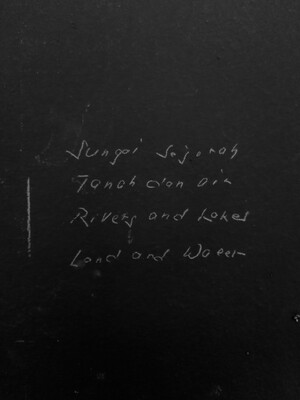 Sungai Sejarah
Tanah dan air
Rivers and Lakes
Land and Water